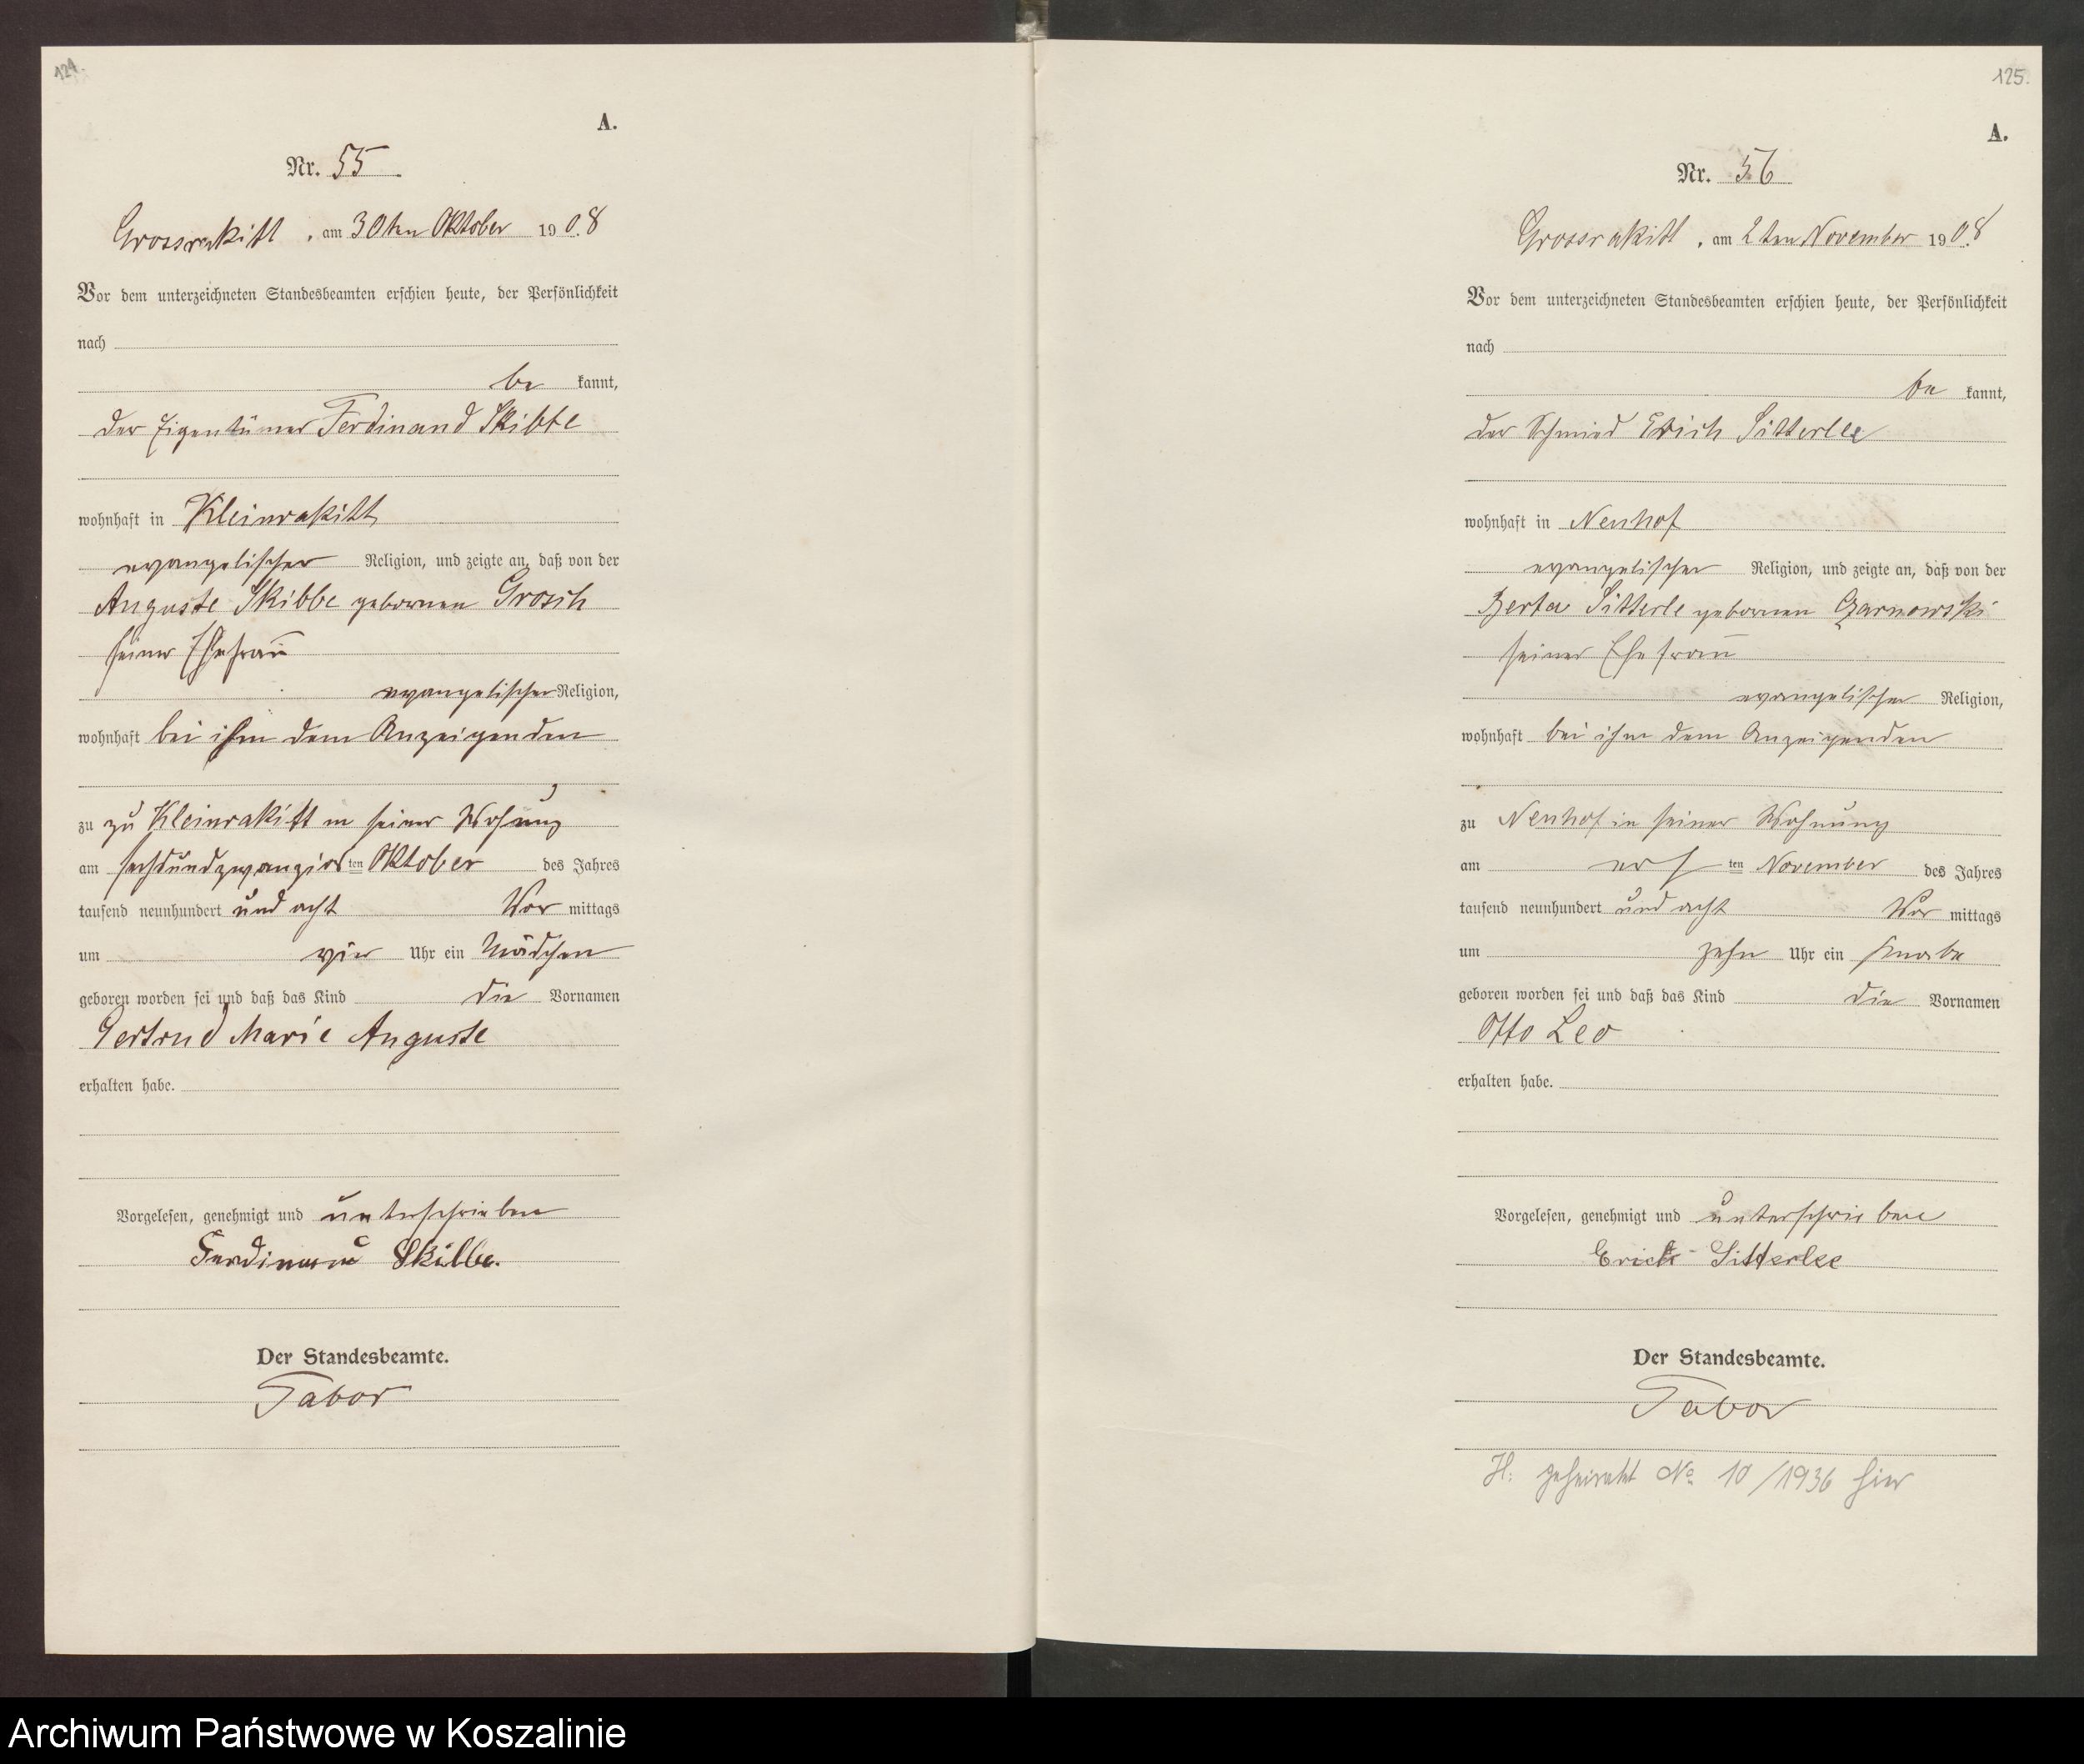 124.
A.
Nr. 55
Grossrakitt, am 30ten Oktober 1908
Vor dem unterzeichneten Standesbeamten erschien heute, der Persönlichkeit
nach
be kannt,
der Eigentümer Ferdinand Skibbe
wohnhaft in Kleinrakitt
evangelischer Religion, und zeigte an, daß von der
Auguste Skibbe geborenen Grosch
seiner Ehefrau
evangelischer Religion,
wohnhaft bei ihm dem Anzeigenden
zu zu Kleinrakitt in seiner Wohnung
am sechsundzwanzigsten Oktober des Jahres
tausend neunhundert und acht Vor mittags
um vier Uhr ein Mädchen
geboren worden sei und daß das Kind die Vornamen
Gertrud Marie Auguste
erhalten habe.
Vorgelesen, genehmigt und unterschrieben
Ferdinand Skibbe.
Der Standesbeamte.
Tabor
125.
A.
Nr. 56
Grossrakitt, am 2ten November 1908
Vor dem unterzeichneten Standesbeamten erschien heute, der Persönlichkeit
nach
be kannt,
der Schmied Erich Sitterlee
wohnhaft in Neuhof
evangelischer Religion, und zeigte an, daß von der
Berta Sitterle geborenen Czarnowski
seiner Ehefrau
evangelischer Religion,
wohnhaft bei ihm dem Anzeigenden
zu Neuhof in seiner Wohnung
am ersten November des Jahres
tausend neunhundert und acht Vor mittags
um zehn Uhr ein Knabe
geboren worden sei und daß das Kind die Vornamen
Otto Leo
erhalten habe.
Vorgelesen, genehmigt und unterschrieben
Erich Sitterlee
Der Standesbeamte.
Tabor
H: geheiratet No 10/1936 hier
Archiwum Państwowe w Koszalinie